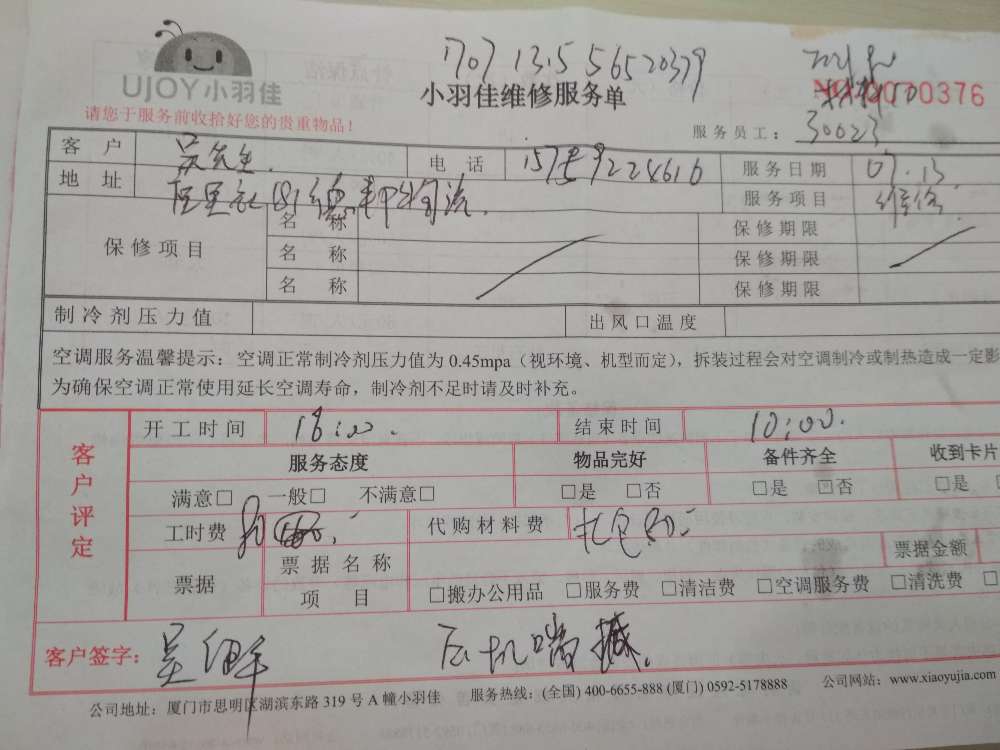 UJOY小羽佳
请您于服务前收拾好您的贵重物品！
小羽佳维修服务单
服务员工：30623
客户 吴先生. 电话 服务日期 07.13
地址 服务项目 维修.
保修项目 名称 保修期限
名称 保修期限
名称 保修期限
制冷剂压力值 出风口温度
空调服务温馨提示：空调正常制冷剂压力值为 0.45mpa（视环境、机型而定），拆装过程会对空调制冷或制热造成一定影
为确保空调正常使用延长空调寿命，制冷剂不足时请及时补充。
客户评定
开工时间 18:00. 结束时间 10:00.
服务态度 物品完好 备件齐全 收到卡片
满意□ 一般□ 不满意□ □是 □否 □是 □否 □是
工时费 代购材料费
票据 票据名称 票据金额
项目 □搬办公用品 □服务费 □清洁费 □空调服务费 □清洗费 □
客户签字：
公司地址：厦门市思明区湖滨东路 319 号 A 幢小羽佳 服务热线：(全国) 400-6655-888 (厦门) 0592-5178888 公司网站：www.xiaoyujia.com